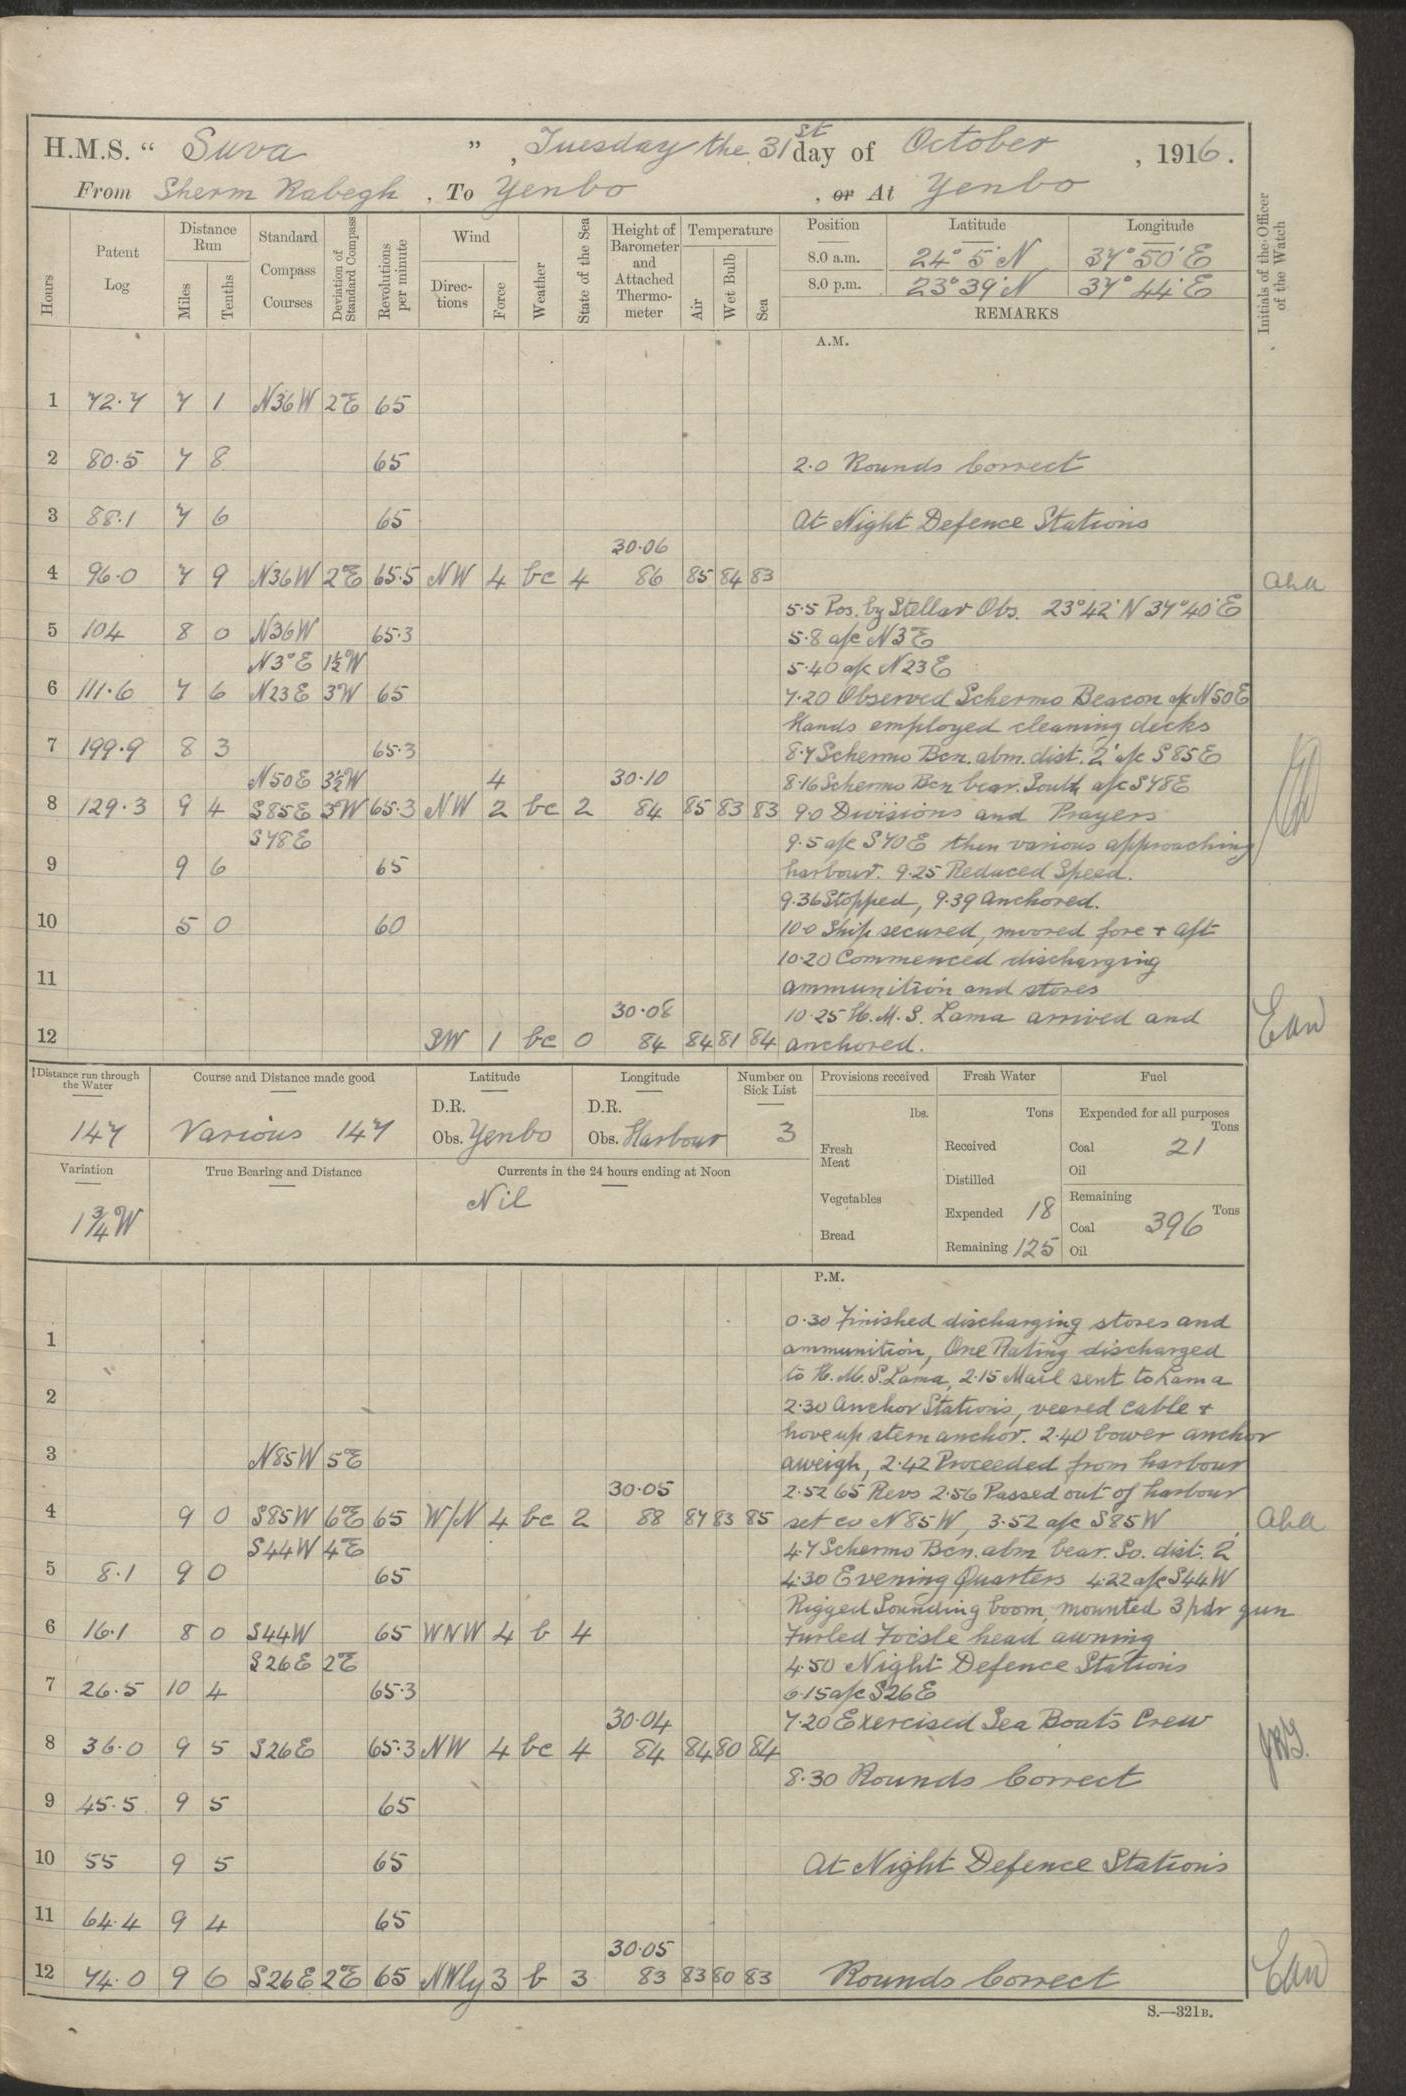 H.M.S. “ Suva ” , Tuesday the 31st day of October , 1916.
From Sherm Rabegh , To Yenbo , or At Yenbo
Hours
Patent Log
Distance Run
Miles
Tenths
Standard Compass Courses
Deviation of Standard Compass
Revolutions per minute
Wind
Direc-tions
Force
Weather
State of the Sea
Height of Barometer and Attached Thermo-meter
Temperature
Air
Wet Bulb
Sea
Position Latitude Longitude
8.0 a.m. 24° 5' N 37° 50' E
8.0 p.m. 23° 39' N 37° 44' E
REMARKS
Initials of the Officer of the Watch
A.M.
1 72.7 7 1 N36W 2°E 65
2 80.5 7 8 65 2.0 Rounds Correct
3 88.1 7 6 65 At Night Defence Stations
30.06
4 96.0 7 9 N36W 2°E 65.5 NW 4 bc 4 86 85 84 83
5.5 Pos. by Stellar Obs. 23°42' N 37°40' E
5 104 8 0 N36W 65.3 5.8 a/c N3°E
N3°E 1½°W 5.40 a/c N23E
6 111.6 7 6 N23E 3°W 65 7.20 Observed Schermo Beacon a/c N50E
Hands employed cleaning decks
7 199.9 8 3 65.3 8.7 Schermo Bcn. abm. dist. 2' a/c S85E
N50E 3½°W 4 30.10 8.16 Schermo Bcn bear. South a/c S78E
8 129.3 9 4 S85E 3°W 65.3 NW 2 bc 2 84 85 83 83 9.0 Divisions and Prayers
S78E 9.5 a/c S70E then various approaching
9 9 6 65 harbour. 9.25 Reduced Speed.
9.36 Stopped, 9.39 Anchored.
10 5 0 60 10.0 Ship secured, moored fore + aft
10.20 Commenced discharging
11 ammunition and stores
30.08 10.25 H.M.S. Lama arrived and
12 SW 1 bc 0 84 84 81 84 anchored.
Distance run through the Water
147
Course and Distance made good
Various 147
Latitude
D.R.
Obs. Yenbo
Longitude
D.R.
Obs. Harbour
Number on Sick List
3
Provisions received
lbs.
Fresh Meat
Vegetables
Bread
Fresh Water
Tons
Received
Distilled
Expended 18
Remaining 125
Fuel
Expended for all purposes
Tons
Coal 21
Oil
Remaining
Tons
Coal 396
Oil
Variation
1¾°W
True Bearing and Distance
Currents in the 24 hours ending at Noon
Nil
P.M.
0.30 Finished discharging stores and
1 ammunition, One Rating discharged
to H.M.S. Lama, 2.15 Mail sent to Lama
2 2.30 Anchor Stations, veered cable +
hove up stern anchor. 2.40 bower anchor
3 N85W 5°E aweigh, 2.42 Proceeded from harbour
30.05 2.52 65 Revs 2.56 Passed out of harbour
4 9 0 S85W 6°E 65 W/N 4 bc 2 88 87 83 85 set co N85W, 3.52 a/c S85W
S44W 4°E 4.7 Schermo Bcn. abm bear. So. dist. 2'
5 8.1 9 0 65 4.30 Evening Quarters 4.22 a/c S44W
Rigged Sounding boom, mounted 3 pdr gun
6 16.1 8 0 S44W 65 WNW 4 b 4 Furled Focsle head awning
S26E 2°E 4.50 Night Defence Stations
7 26.5 10 4 65.3 6.15 a/c S26E
30.04 7.20 Exercised Sea Boats Crew
8 36.0 9 5 S26E 65.3 NW 4 bc 4 84 84 80 84
8.30 Rounds Correct
9 45.5 9 5 65
10 55 9 5 65 At Night Defence Stations
11 64.4 9 4 65
30.05
12 74.0 9 6 S26E 2°E 65 NWly 3 b 3 83 83 80 83 Rounds Correct
S.—321B.